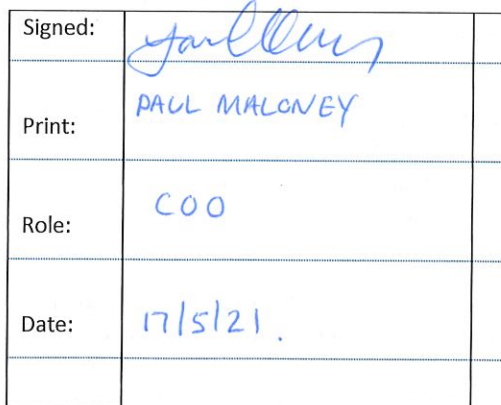 Signed:
Print: PAUL MALONEY
Role: COO
Date: 17/5/21.